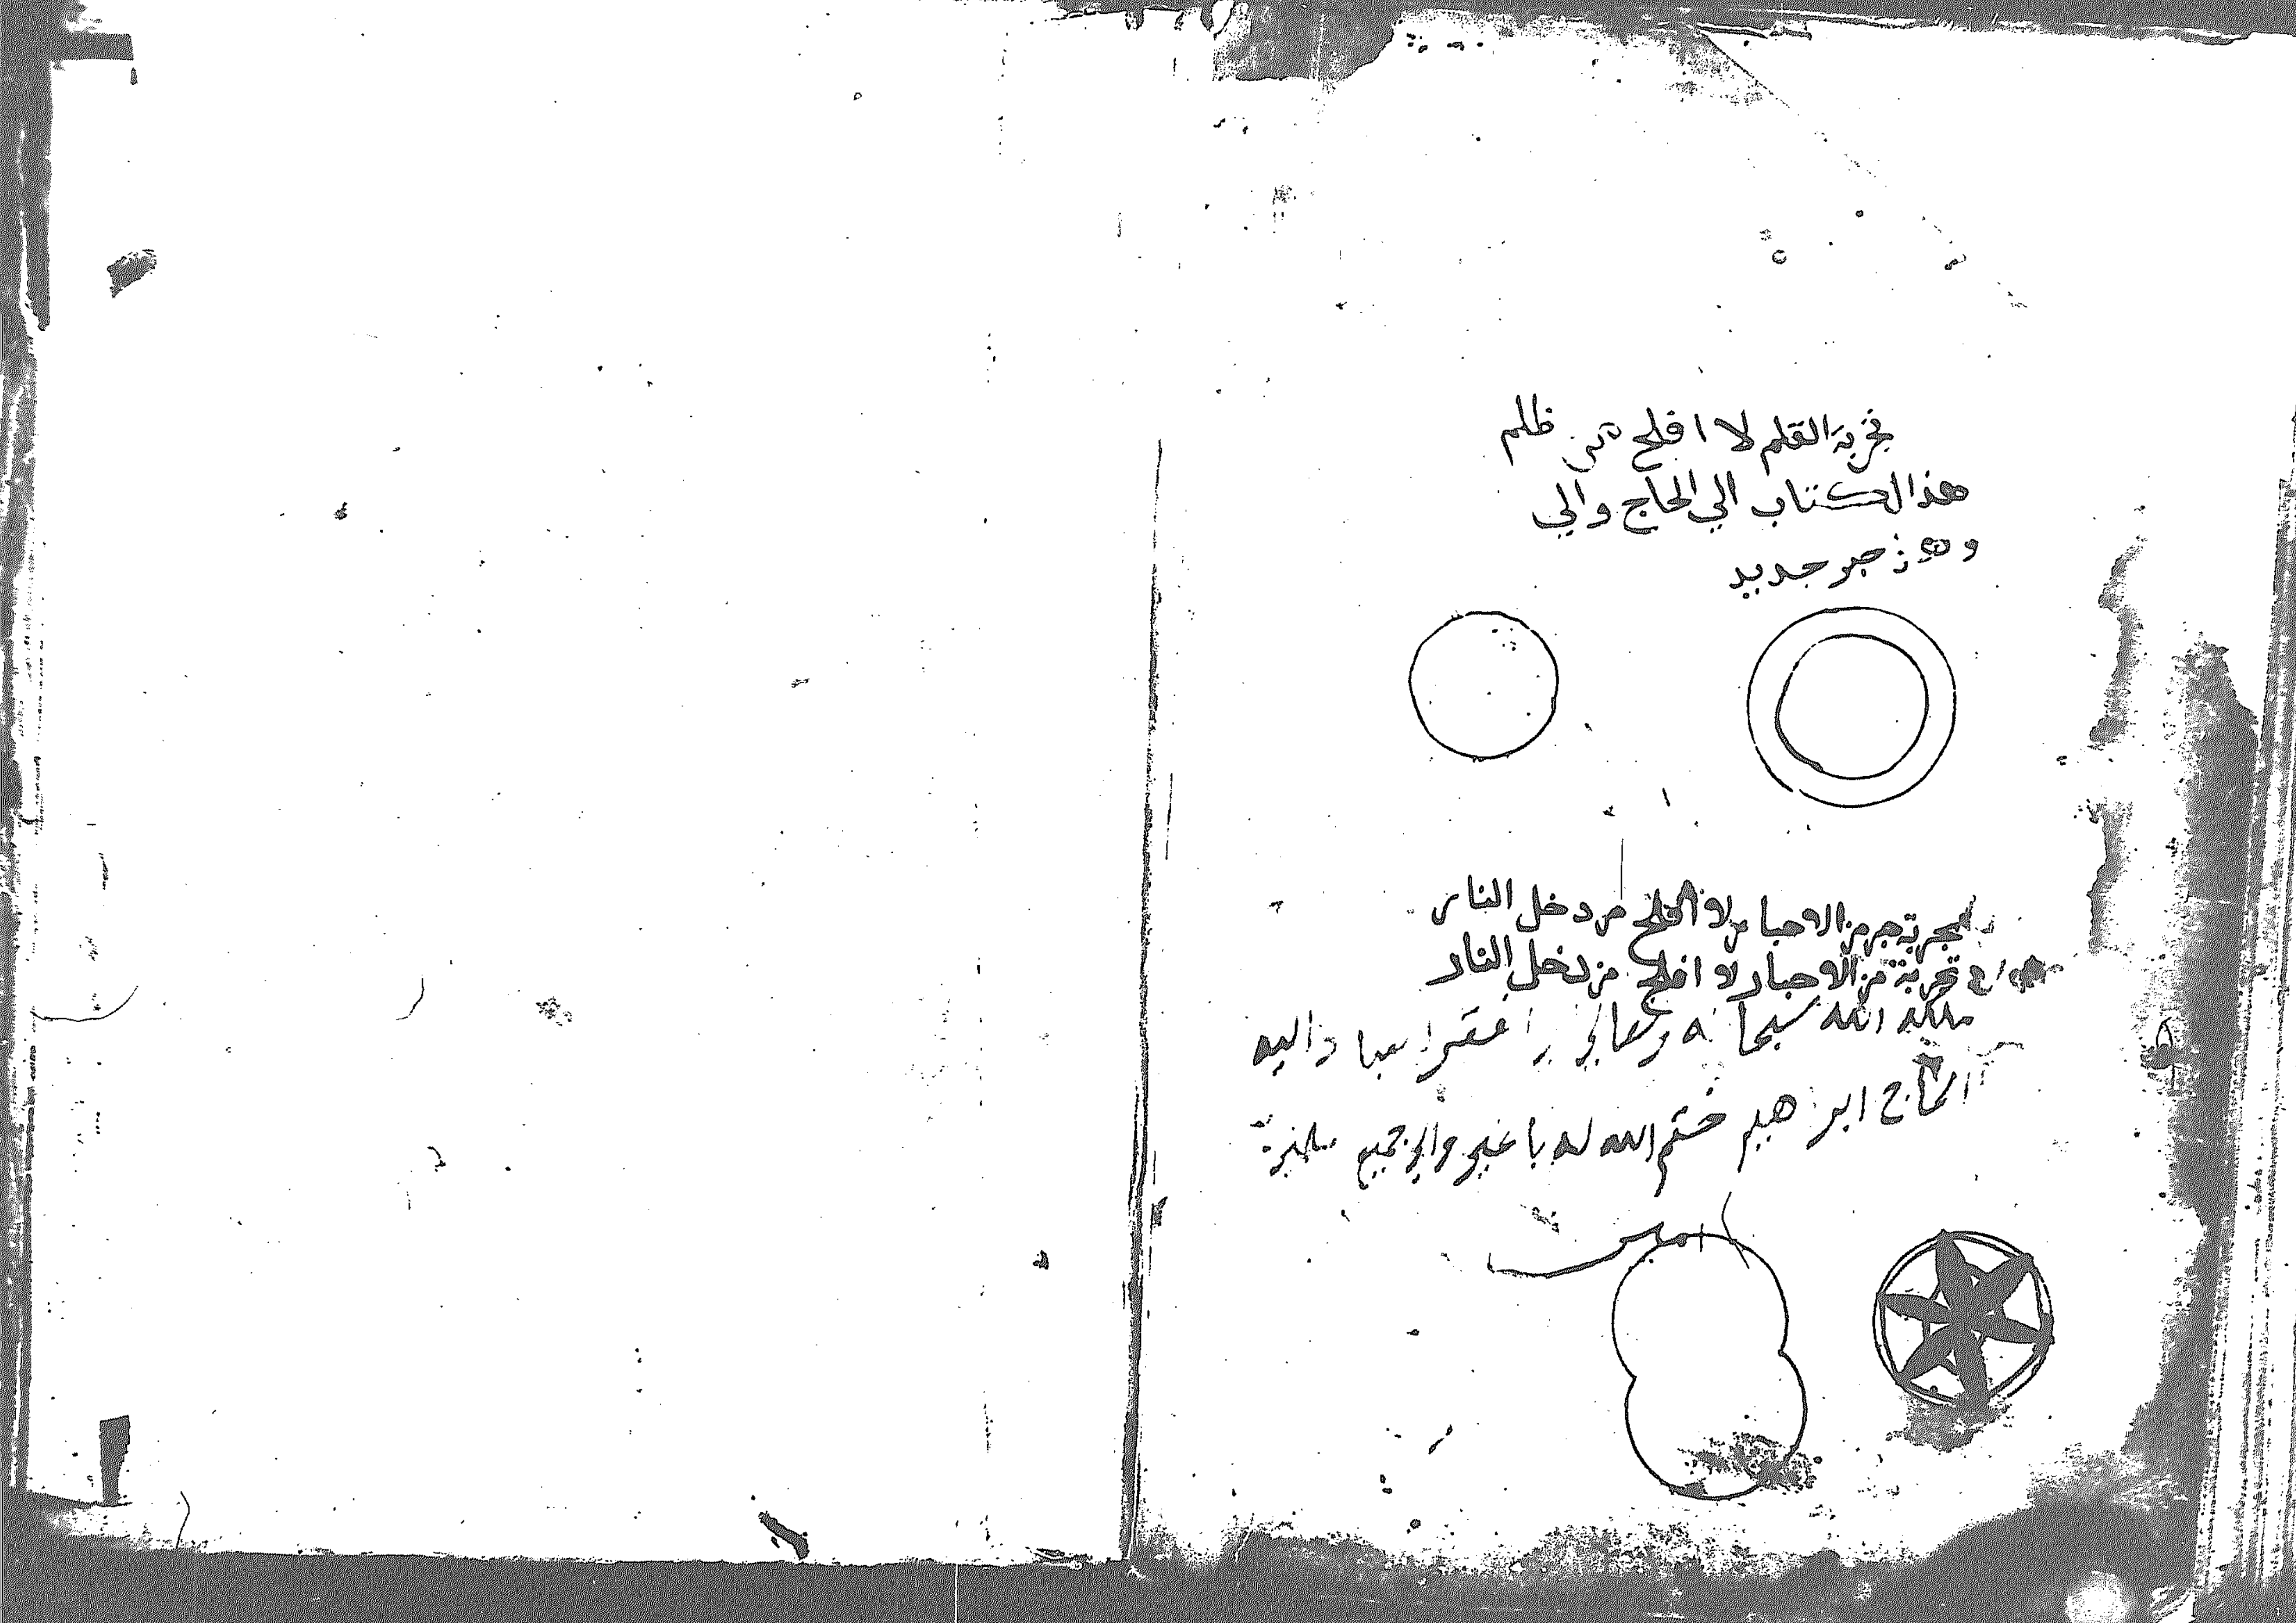 تجربة القلم لا افلح من ظلم
هذا الكتاب الي الحاج والي
و حبر جديد
من الاحبار لا افلح من دخل النار
تجربة من الاحبار لا افلح من دخل النار
ملكه الله سبحانه وتعالي افقر اليه
الحاج ابراهيم ختم الله له والي جميع
امين